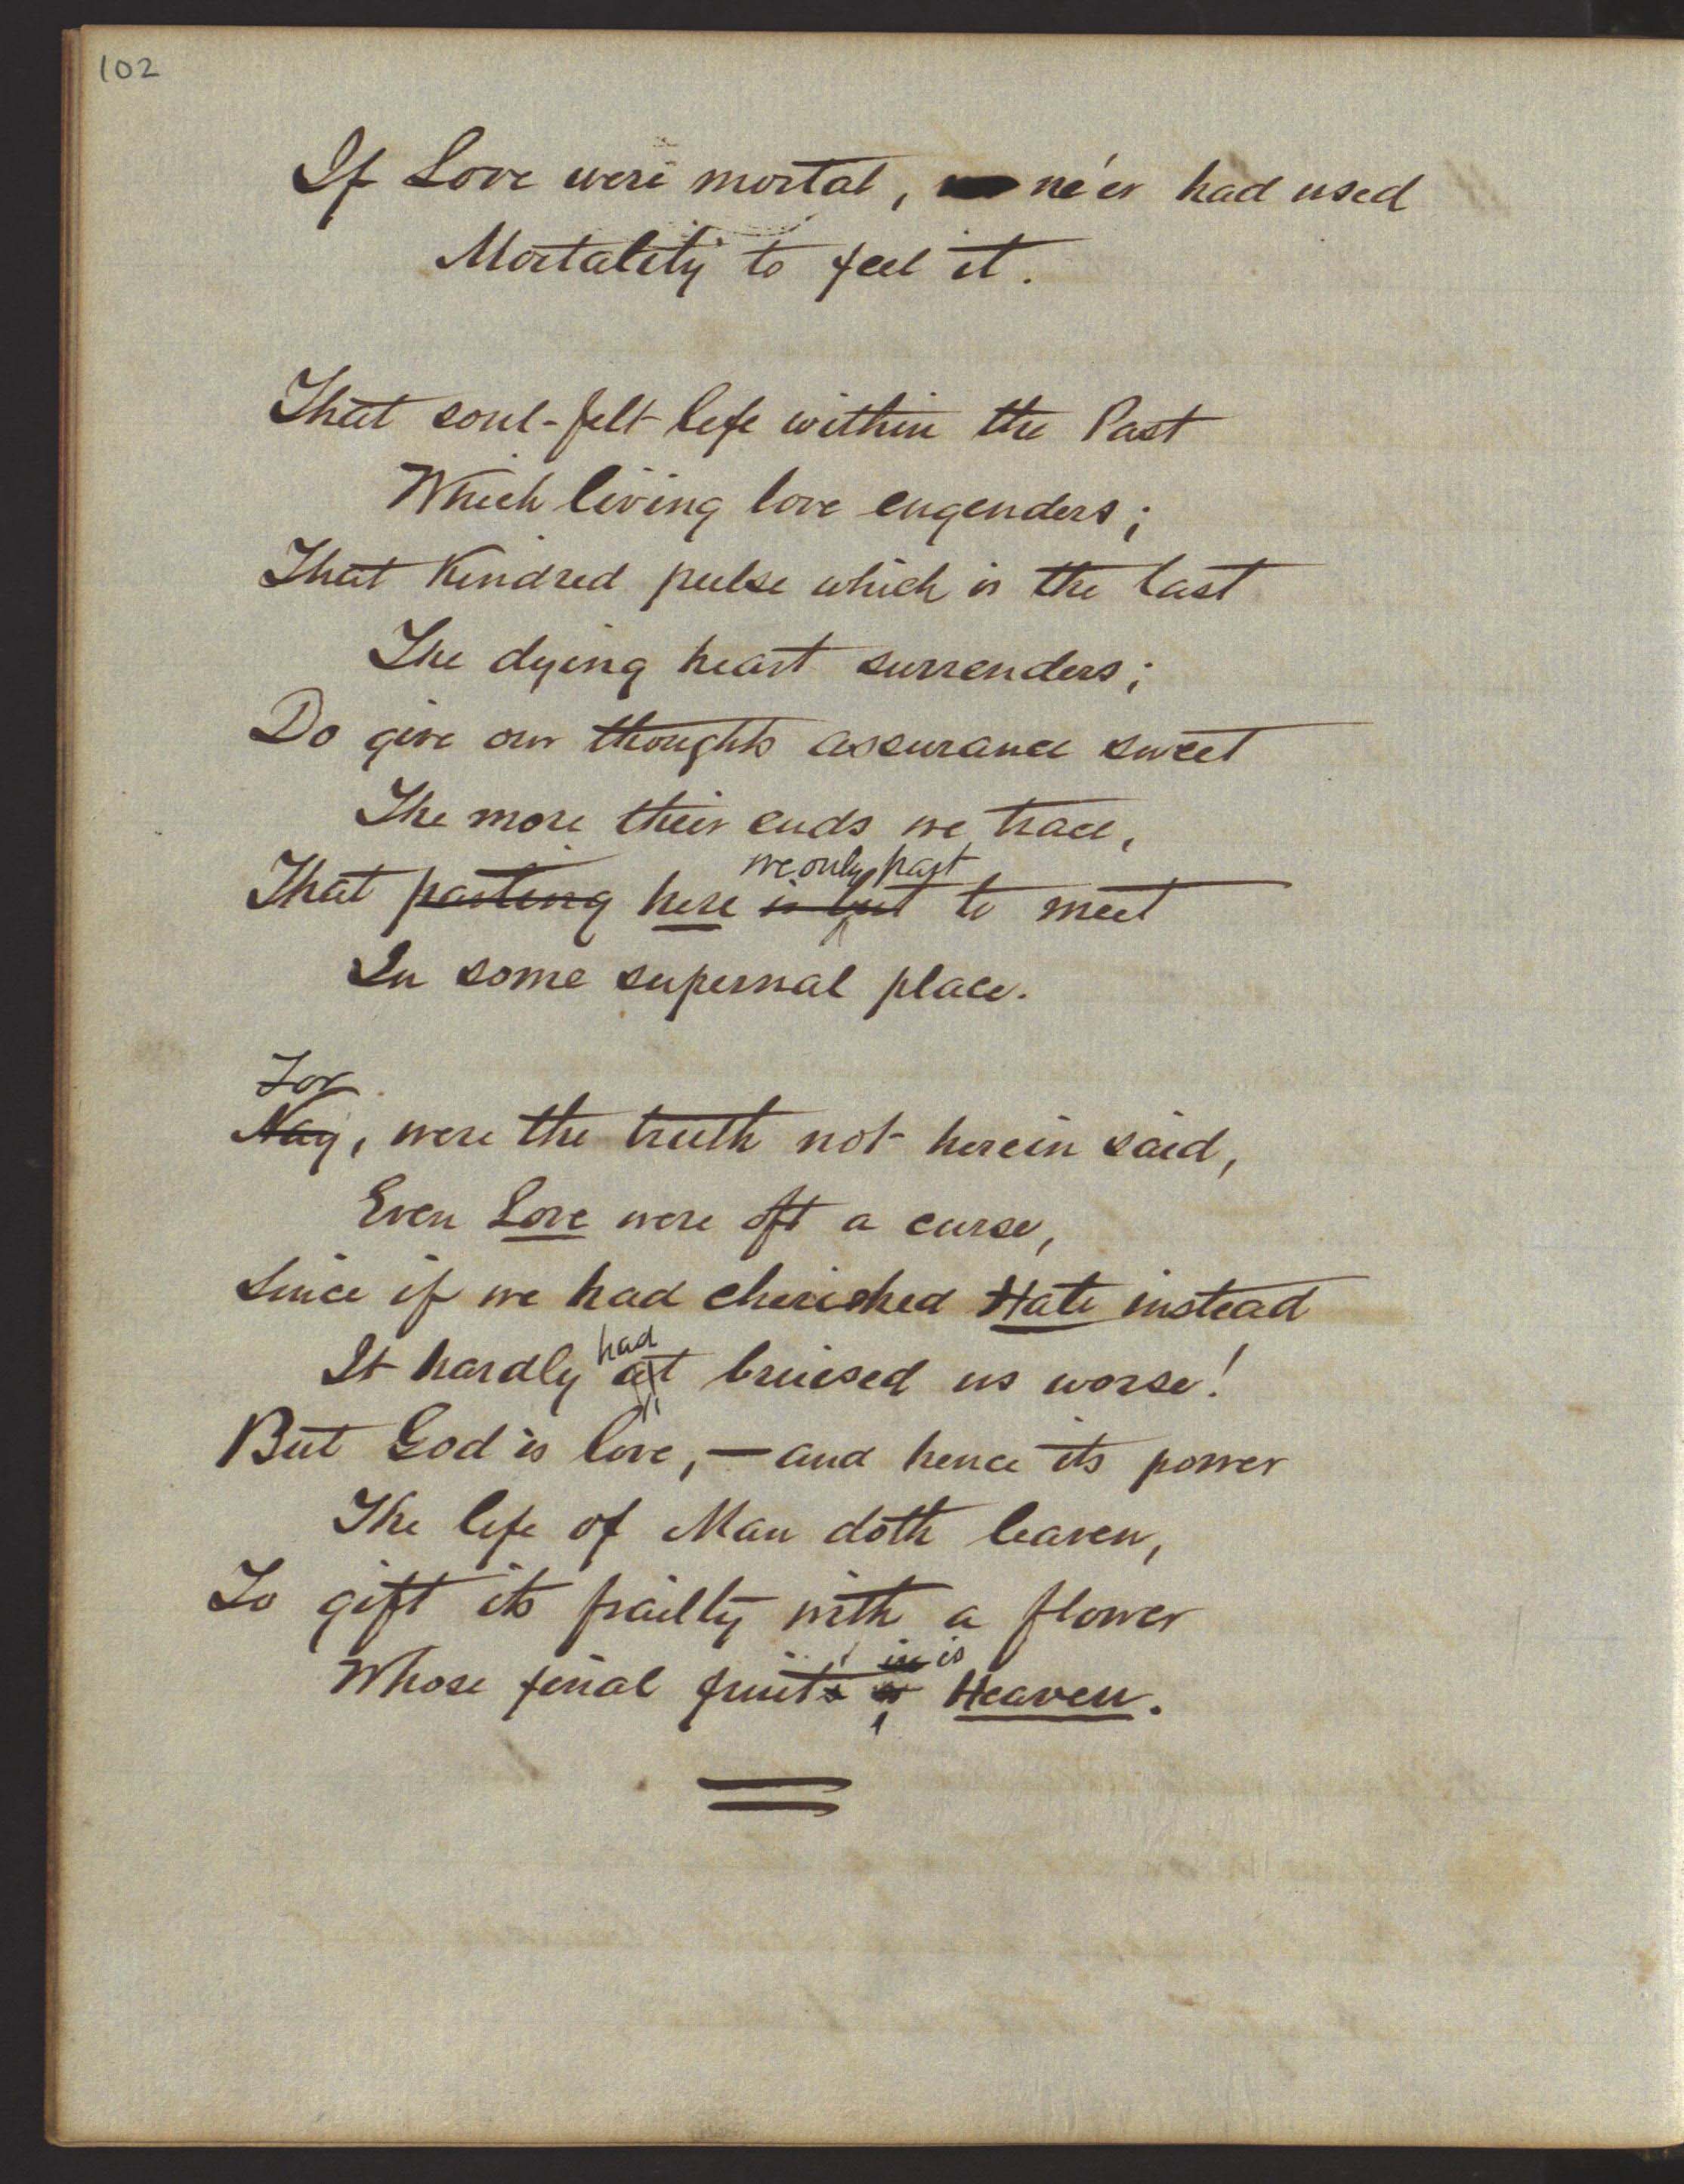 102
If Love were mortal, ne'er had used
Mortality to feel it.
That soul-felt life within the Past
Which living love engenders;
That Kindred pulse which is the last
The dying heart surrenders;
Do give our thoughts assurance sweet
The more their ends we trace,
we only part
That parting here is but to meet
In some supernal place.
For
Nay, were the truth not herein said,
Even Love were oft a curse,
Since if we had cherished Hate instead
had
It hardly bruised us worse!
But God is love, — and hence its power
The life of Man doth leaven,
To gift its frailty with a flower
in is
Whose final fruits Heaven.